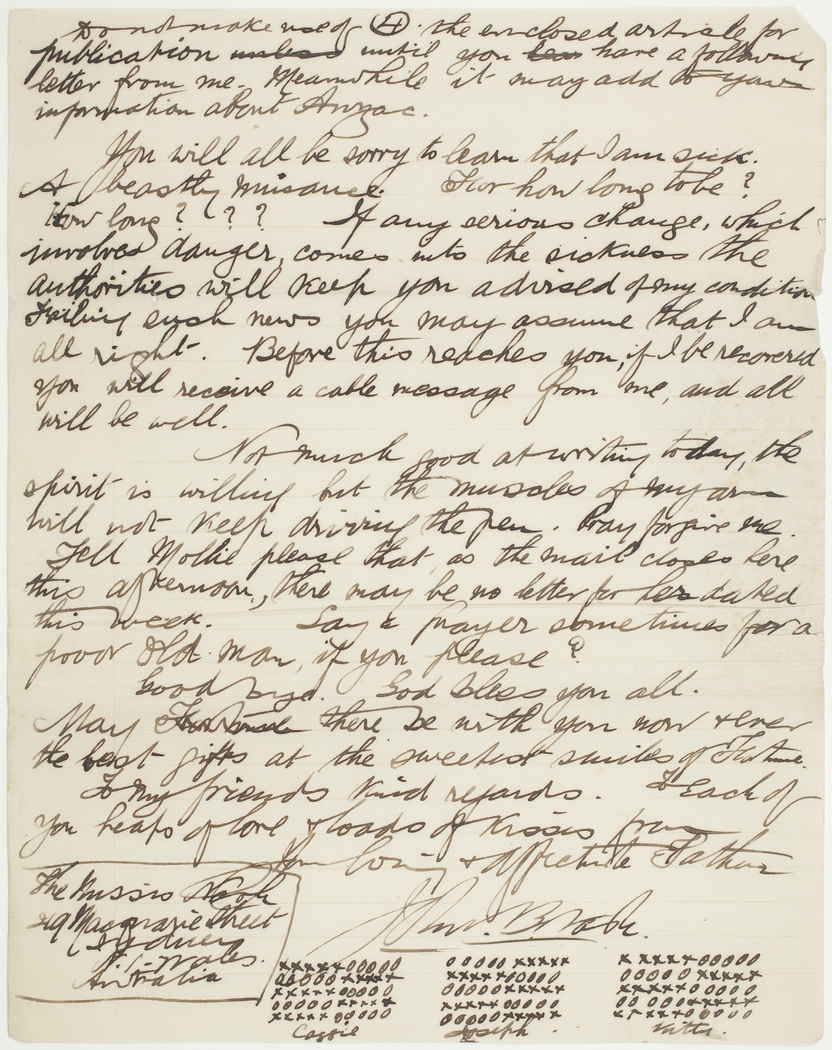 Do not make use of ④. the enclosed article for
publication unless until you have a following
letter from me. Meanwhile it may add to your
information about Anzac.
You will all be sorry to learn that I am sick.
A beastly nuisance. For how long to be?
How long? ? ? If any serious change, which
involves danger, comes into the sickness the
authorities will keep you advised of my condition
Failing such news you may assume that I am
all right. Before this reaches you, if I be recovered
you will receive a cable message from me, and all
will be well.
Not much good at writing today, the
spirit is willing but the muscles of my arm
will not keep driving the pen. Pray forgive me.
Tell Mollie please that, as the mail closes here
this afternoon, there may be no letter for her dated
this week. Say a prayer sometimes for a
poor old man, if you please?
Good bye. God bless you all.
May there be with you now & ever
the best gifts at the sweetest smiles of Fortune.
To my friends kind regards. To each of
you heaps of love & loads of kisses from
Your loving & affectnte Father
The Misses
219 Macquarie Street
Sydney
N.S. Wales.
Australia
John B.
xxxxx00000 00000xxxxx xxxxx00000
00000xxxxx xxxxx00000 00000xxxxx
xxxxx00000 00000xxxxx xxxxx00000
00000xxxxx xxxxx00000 00000xxxxx
xxxxx00000 00000xxxxx xxxxx00000
Joseph.